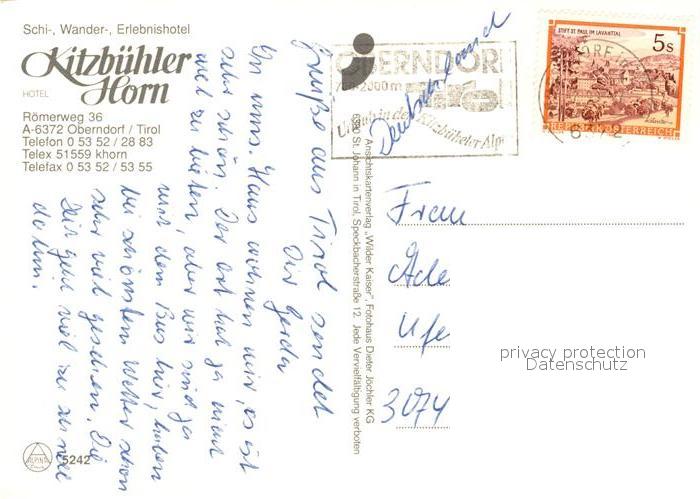 Schi-, Wander-, Erlebnishotel
Kitzbühler
HOTEL Horn
Römerweg 36
A-6372 Oberndorf / Tirol
Telefon 0 53 52 / 28 83
Telex 51559 khorn
Telefax 0 53 52 / 53 55
Grüße aus Tirol sendet
Dir Gerda
In uns. Haus wohnen wir, es ist
sehr schön. Der Ort hat ja nicht
viel zu bieten, aber wir sind ja
mit dem Bus hier, haben
bei schönstem Wetter schon
sehr viel gesehen. Die
Zeit geht viel zu schnell
dahin.
5242
ALPINA
Ansichtskartenverlag „Wilder Kaiser", Fotohaus Dieter Jöchler KG
6380 St. Johann in Tirol, Speckbacherstraße 12. Jede Vervielfältigung verboten
OBERNDORF
2000 m
Urlaub in den Kitzbüheler Alpen
Deutschland
STIFT ST. PAUL IM LAVANTTAL
5 S
REPUBLIK ÖSTERREICH
Frau
Ade
Ufe
3074
privacy protection
Datenschutz